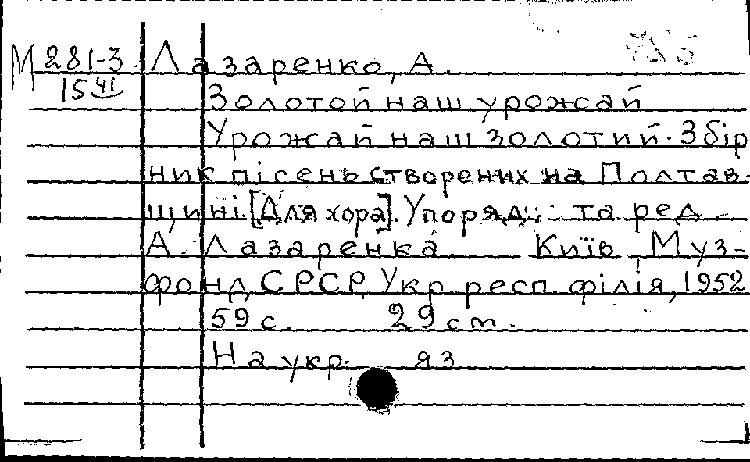 М 281-3 Лазаренко, А.
15 41
Золотой наш урожай
Урожай наш золотий. Збір
ник пісень створених на Полтав-
щині. [Для хора]. Упоряд. та ред.
А. Лазаренка Київ, Муз-
фонд СРСР, Укр. респ. філія, 1952
59 с. 29 см.
На укр. яз